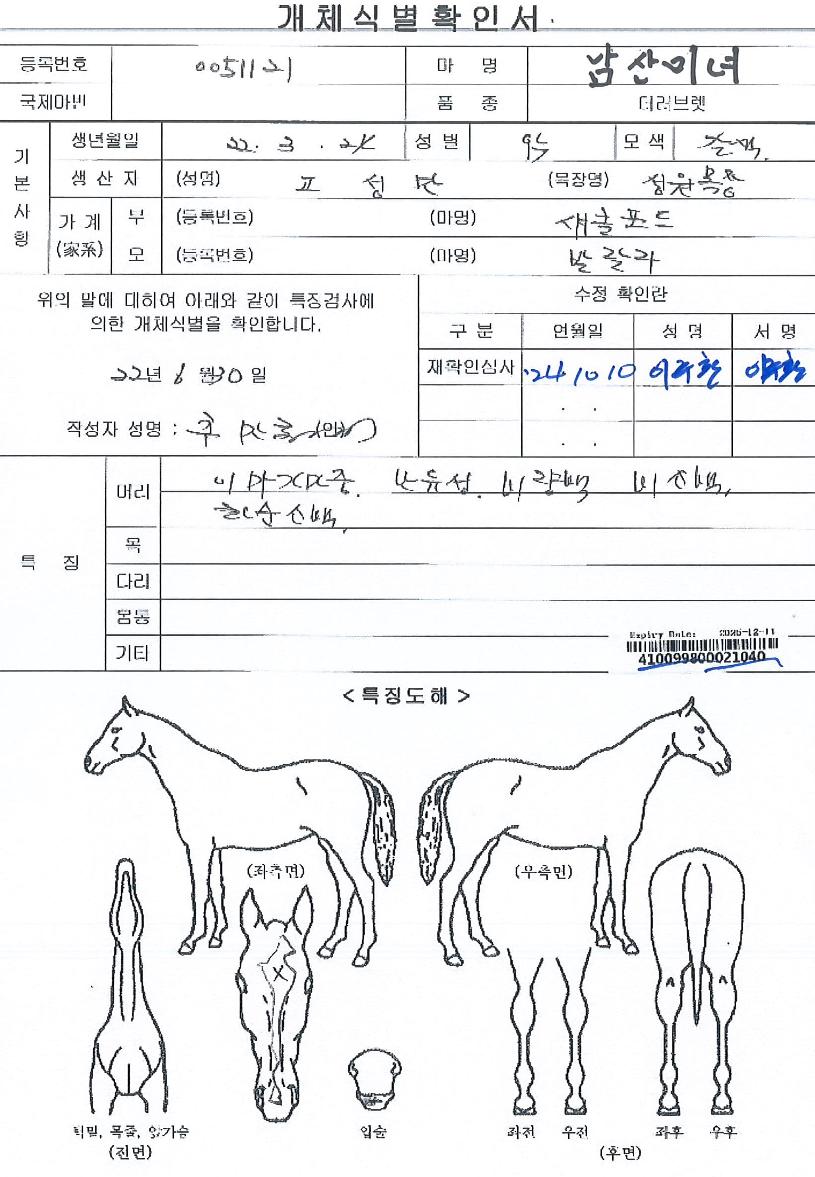 개체식별확인서
등록번호 0051121 마 명 남산미녀
국제마번 품 종 더러브렛
기본사항
생년월일 22. 3 . 24 성별 암 모색 갈색
생 산 자 (성명) (목장명) 성원목장
가 계 (家系) 부 (등록번호) (마명) 섀클포드
모 (등록번호) (마명) 발랄라
위의 말에 대하여 아래와 같이 특징검사에
의한 개체식별을 확인합니다.
22년 6월 30일
작성자 성명 :
수정 확인란
구 분 연월일 성 명 서 명
재확인심사 '24.10.10
특 징
머리 유성. 비량백 비신백,
목
다리
몸통
기타
Expiry Date: 2025-12-11
410099800021040
<특징도해>
(좌측면) (우측면)
X
턱밑, 목줄, 앞가슴 입술 좌전 우전 좌후 우후
(전면) (후면)